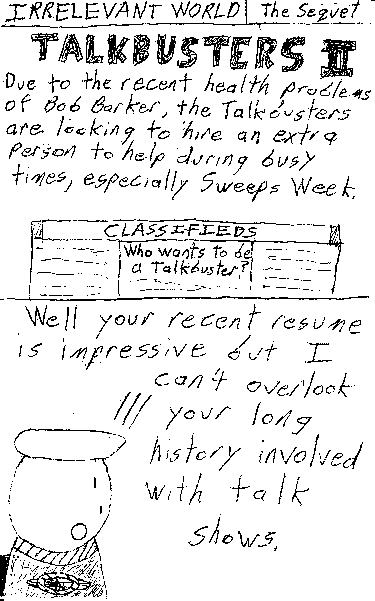 IRRELEVANT WORLD | The Sequel
TALKBUSTERS II
Due to the recent health problems
of Bob Barker, the Talkbusters
are looking to hire an extra
person to help during busy
times, especially Sweeps Week.
CLASSIFIEDS
Who wants to be
a Talkbuster?
Well your recent resume
is impressive but I
can't overlook
your long
history involved
with talk
shows.